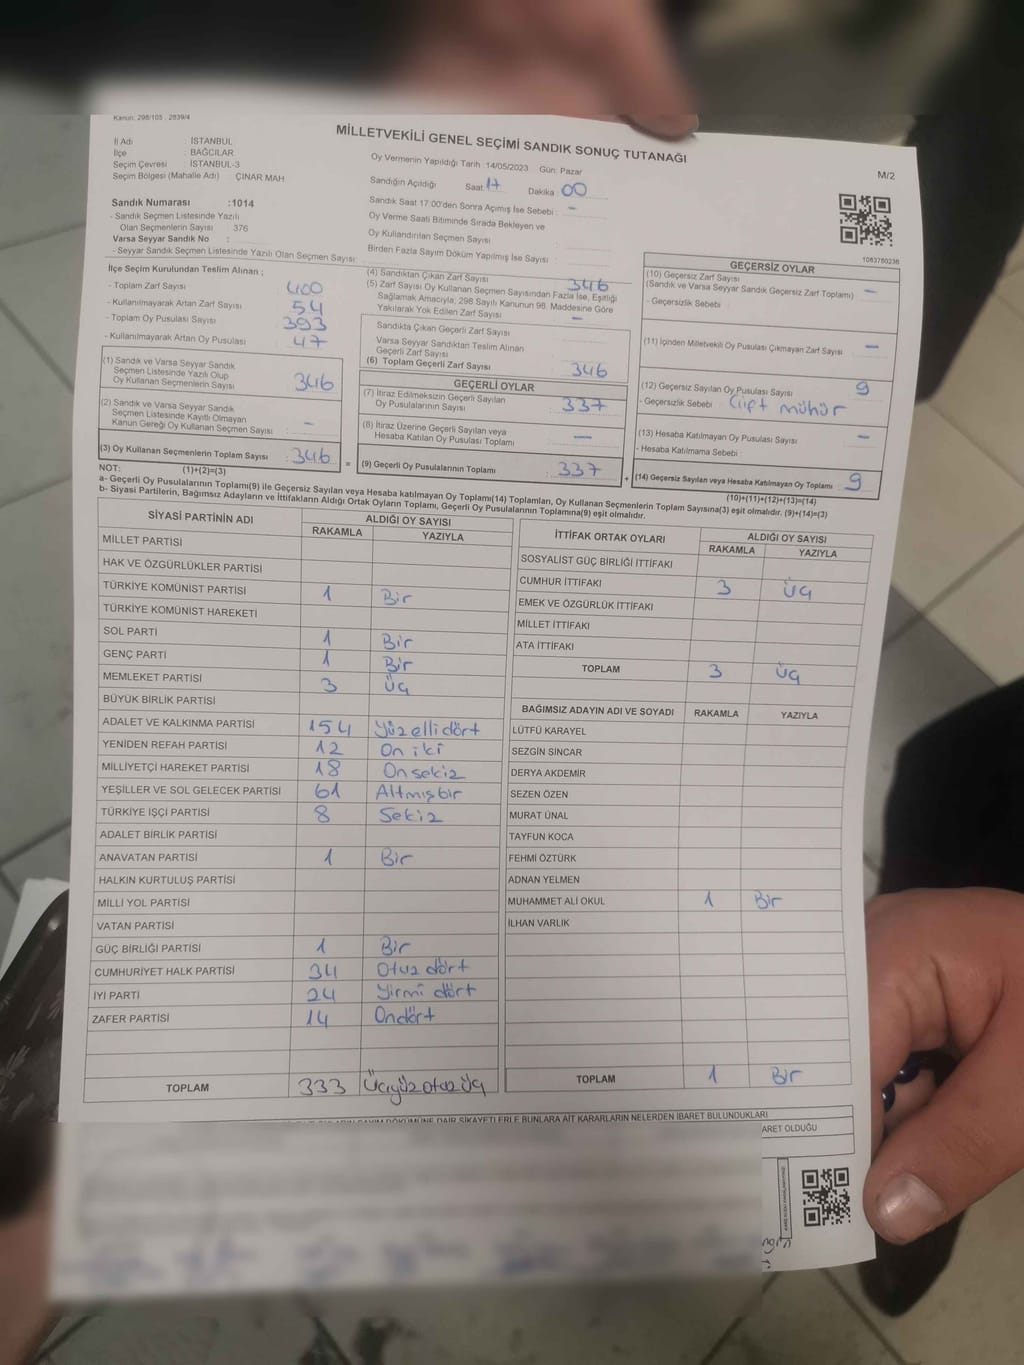 Kanun: 298/105 , 2839/4
MİLLETVEKİLİ GENEL SEÇİMİ SANDIK SONUÇ TUTANAĞI
M/2
İl Adı : İSTANBUL
İlçe : BAĞCILAR
Seçim Çevresi : İSTANBUL-3
Seçim Bölgesi (Mahalle Adı) : ÇINAR MAH.
Sandık Numarası :1014
- Sandık Seçmen Listesinde Yazılı
Olan Seçmenlerin Sayısı : 376
Varsa Seyyar Sandık No :
- Seyyar Sandık Seçmen Listesinde Yazılı Olan Seçmen Sayısı:
Oy Vermenin Yapıldığı Tarih :14/05/2023 Gün: Pazar
Sandığın Açıldığı Saat: 17 Dakika : 00
Sandık Saat 17:00'den Sonra Açımış İse Sebebi : -
Oy Verme Saati Bitiminde Sırada Bekleyen ve
Oy Kullandırılan Seçmen Sayısı :
Birden Fazla Sayım Döküm Yapılmış İse Sayısı :
1063750236
İlçe Seçim Kurulundan Teslim Alınan ;
- Toplam Zarf Sayısı : 400
- Kullanılmayarak Artan Zarf Sayısı : 54
- Toplam Oy Pusulası Sayısı : 393
- Kullanılmayarak Artan Oy Pusulası : 47
(1) Sandık ve Varsa Seyyar Sandık
Seçmen Listesinde Yazılı Olup
Oy Kullanan Seçmenlerin Sayısı : 346
(2) Sandık ve Varsa Seyyar Sandık
Seçmen Listesinde Kayıtlı Olmayan
Kanun Gereği Oy Kullanan Seçmen Sayısı : -
(3) Oy Kullanan Seçmenlerin Toplam Sayısı : 346
(1)+(2)=(3)
(4) Sandıktan Çıkan Zarf Sayısı : 346
(5) Zarf Sayısı Oy Kullanan Seçmen Sayısından Fazla İse, Eşitliği
Sağlamak Amacıyla; 298 Sayılı Kanunun 98. Maddesine Göre
Yakılarak Yok Edilen Zarf Sayısı : -
Sandıkta Çıkan Geçerli Zarf Sayısı :
Varsa Seyyar Sandıktan Teslim Alınan
Geçerli Zarf Sayısı :
(6) Toplam Geçerli Zarf Sayısı : 346
=
GEÇERLİ OYLAR
(7) İtiraz Edilmeksizin Geçerli Sayılan
Oy Pusulalarının Sayısı : 337
(8) İtiraz Üzerine Geçerli Sayılan veya
Hesaba Katılan Oy Pusulası Toplamı : -
(9) Geçerli Oy Pusulalarının Toplamı : 337
+
GEÇERSİZ OYLAR
(10) Geçersiz Zarf Sayısı
(Sandık ve Varsa Seyyar Sandık Geçersiz Zarf Toplamı) : -
- Geçersizlik Sebebi :
(11) İçinden Milletvekili Oy Pusulası Çıkmayan Zarf Sayısı : -
(12) Geçersiz Sayılan Oy Pusulası Sayısı : 9
- Geçersizlik Sebebi : Çift mühür
(13) Hesaba Katılmayan Oy Pusulası Sayısı : -
- Hesaba Katılmama Sebebi :
(14) Geçersiz Sayılan veya Hesaba Katılmayan Oy Toplamı : 9
(10)+(11)+(12)+(13)=(14)
NOT:
a- Geçerli Oy Pusulalarının Toplamı(9) ile Geçersiz Sayılan veya Hesaba katılmayan Oy Toplamı(14) Toplamları, Oy Kullanan Seçmenlerin Toplam Sayısına(3) eşit olmalıdır. (9)+(14)=(3)
b- Siyasi Partilerin, Bağımsız Adayların ve İttifakların Aldığı Ortak Oyların Toplamı, Geçerli Oy Pusulalarının Toplamına(9) eşit olmalıdır.
SİYASİ PARTİNİN ADI ALDIĞI OY SAYISI
RAKAMLA YAZIYLA
MİLLET PARTİSİ
HAK VE ÖZGÜRLÜKLER PARTİSİ
TÜRKİYE KOMÜNİST PARTİSİ 1 Bir
TÜRKİYE KOMÜNİST HAREKETİ
SOL PARTİ 1 Bir
GENÇ PARTİ 1 Bir
MEMLEKET PARTİSİ 3 Üç
BÜYÜK BİRLİK PARTİSİ
ADALET VE KALKINMA PARTİSİ 154 Yüz elli dört
YENİDEN REFAH PARTİSİ 12 On iki
MİLLİYETÇİ HAREKET PARTİSİ 18 On sekiz
YEŞİLLER VE SOL GELECEK PARTİSİ 61 Altmışbir
TÜRKİYE İŞÇİ PARTİSİ 8 Sekiz
ADALET BİRLİK PARTİSİ
ANAVATAN PARTİSİ 1 Bir
HALKIN KURTULUŞ PARTİSİ
MİLLİ YOL PARTİSİ
VATAN PARTİSİ
GÜÇ BİRLİĞİ PARTİSİ 1 Bir
CUMHURİYET HALK PARTİSİ 34 Otuz dört
İYİ PARTİ 24 Yirmi dört
ZAFER PARTİSİ 14 Ondört
TOPLAM 333 Üçyüz otuz üç
İTTİFAK ORTAK OYLARI ALDIĞI OY SAYISI
RAKAMLA YAZIYLA
SOSYALİST GÜÇ BİRLİĞİ İTTİFAKI
CUMHUR İTTİFAKI 3 Üç
EMEK VE ÖZGÜRLÜK İTTİFAKI
MİLLET İTTİFAKI
ATA İTTİFAKI
TOPLAM 3 Üç
BAĞIMSIZ ADAYIN ADI VE SOYADI RAKAMLA YAZIYLA
LÜTFÜ KARAYEL
SEZGİN SİNCAR
DERYA AKDEMİR
SEZEN ÖZEN
MURAT ÜNAL
TAYFUN KOCA
FEHMİ ÖZTÜRK
ADNAN YELMEN
MUHAMMET ALİ OKUL 1 Bir
İLHAN VARLIK
TOPLAM 1 Bir
DÖKÜMÜNE DAİR ŞİKAYETLERLE BUNLARA AİT KARARLARIN NELERDEN İBARET BULUNDUKLARI
ARET OLDUĞU